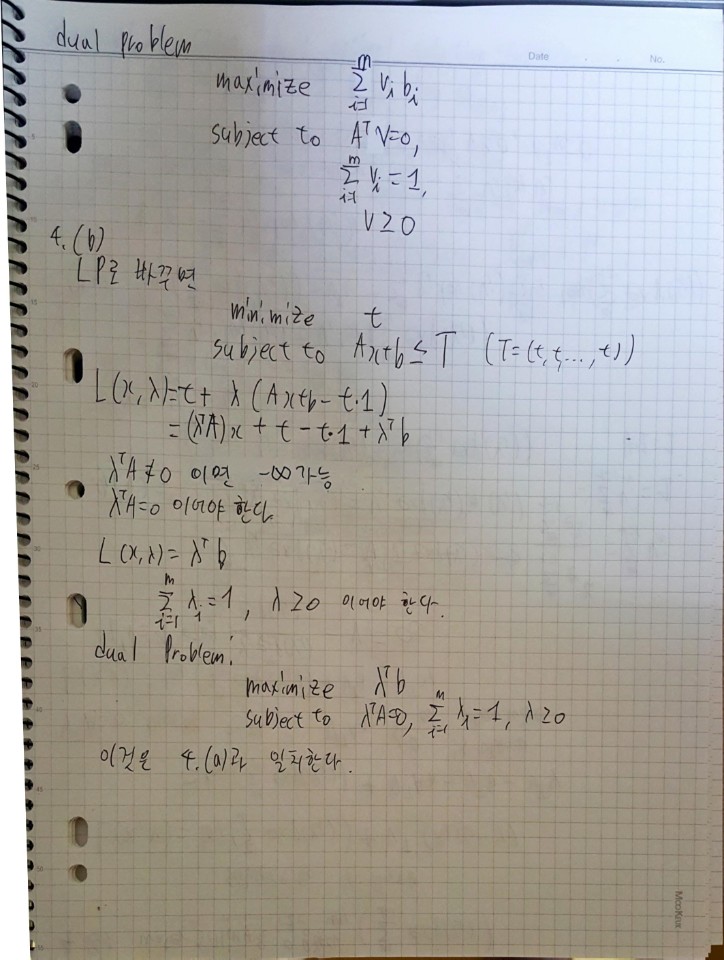 Date . . No.
dual problem
maximize $\sum_{i=1}^{m} v_i b_i$
subject to $A^T v = 0,$
$\sum_{i=1}^{m} v_i = 1,$
$v \geq 0$
4. (b)
LP로 바꾸면
minimize t
subject to $Ax+b \leq T$ $(T=(t,t,...,t))$
$L(x,\lambda) = t + \lambda(Ax+b-t\cdot 1)$
$= (\lambda^T A)x + t - t\cdot 1 + \lambda^T b$
$\lambda^T A \neq 0$ 이면 $-\infty$ 가능
$\lambda^T A = 0$ 이어야 한다
$L(x,\lambda) = \lambda^T b$
$\sum_{i=1}^{m} \lambda_i = 1, \lambda \geq 0$ 이어야 한다.
dual Problem:
maximize $\lambda^T b$
subject to $\lambda^T A = 0, \sum_{i=1}^{m} \lambda_i = 1, \lambda \geq 0$
이것은 4.(a)과 일치한다.